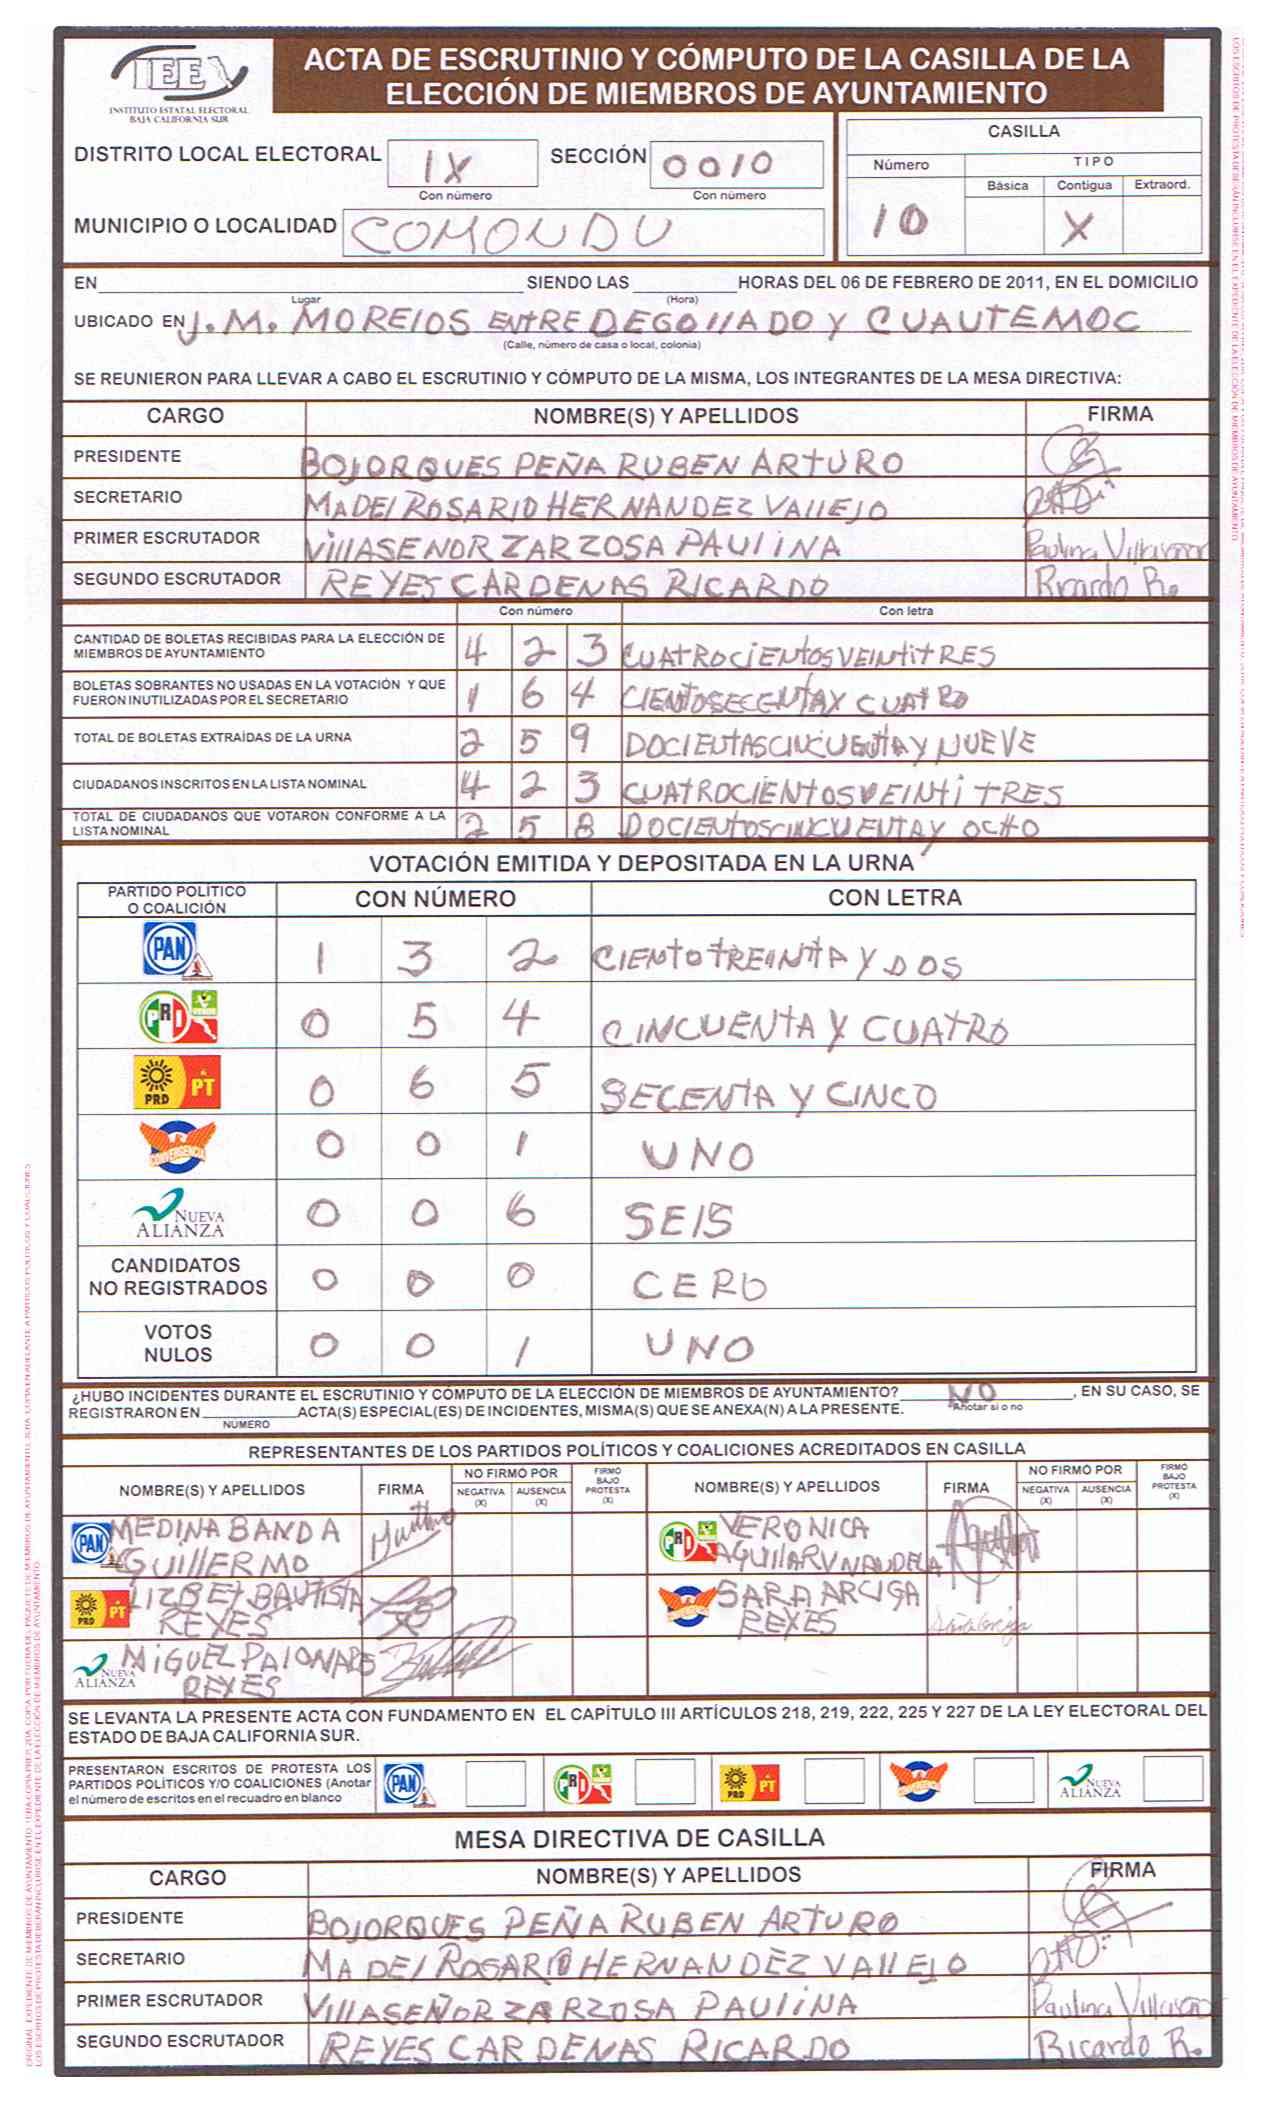 IEE
INSTITUTO ESTATAL ELECTORAL
BAJA CALIFORNIA SUR
ACTA DE ESCRUTINIO Y CÓMPUTO DE LA CASILLA DE LA
ELECCIÓN DE MIEMBROS DE AYUNTAMIENTO
DISTRITO LOCAL ELECTORAL IX SECCIÓN 0010
Con número Con número
MUNICIPIO O LOCALIDAD COMONDU
CASILLA
Número TIPO
Básica Contigua Extraord.
10 X
EN SIENDO LAS HORAS DEL 06 DE FEBRERO DE 2011, EN EL DOMICILIO
Lugar (Hora)
UBICADO EN J. M. MORElOS ENTRE DEGOllADO Y CUAUTEMOC
(Calle, número de casa o local, colonia)
SE REUNIERON PARA LLEVAR A CABO EL ESCRUTINIO Y CÓMPUTO DE LA MISMA, LOS INTEGRANTES DE LA MESA DIRECTIVA:
CARGO NOMBRE(S) Y APELLIDOS FIRMA
PRESIDENTE BOJORQUES PEÑA RUBEN ARTURO
SECRETARIO MA DEl ROSARIO HERNANDEZ VAllEJO
PRIMER ESCRUTADOR VillASEÑOR ZARZOSA PAULINA Paulina Villaseñor
SEGUNDO ESCRUTADOR REYES CARDENAS RICARDO Ricardo R.
Con número Con letra
CANTIDAD DE BOLETAS RECIBIDAS PARA LA ELECCIÓN DE
MIEMBROS DE AYUNTAMIENTO 4 2 3 CUATROCIENTOSVEINTITRES
BOLETAS SOBRANTES NO USADAS EN LA VOTACIÓN Y QUE
FUERON INUTILIZADAS POR EL SECRETARIO 1 6 4 CIENTOSECENTAY CUATRO
TOTAL DE BOLETAS EXTRAÍDAS DE LA URNA 2 5 9 DOCIENTASCINCUENTA Y NUEVE
CIUDADANOS INSCRITOS EN LA LISTA NOMINAL 4 2 3 CUATROCIENTOSVEINTITRES
TOTAL DE CIUDADANOS QUE VOTARON CONFORME A LA
LISTA NOMINAL 2 5 8 DOCIENTOSCINCUENTA Y OCHO
VOTACIÓN EMITIDA Y DEPOSITADA EN LA URNA
PARTIDO POLÍTICO
O COALICIÓN CON NÚMERO CON LETRA
PAN 1 3 2 CIENTO TREINTA Y DOS
PRI VERDE 0 5 4 CINCUENTA Y CUATRO
PRD PT 0 6 5 SECENTA Y CINCO
CONVERGENCIA 0 0 1 UNO
NUEVA ALIANZA 0 0 6 SEIS
CANDIDATOS
NO REGISTRADOS 0 0 0 CERO
VOTOS
NULOS 0 0 1 UNO
¿HUBO INCIDENTES DURANTE EL ESCRUTINIO Y CÓMPUTO DE LA ELECCIÓN DE MIEMBROS DE AYUNTAMIENTO? NO , EN SU CASO, SE
Anotar si o no
REGISTRARON EN ACTA(S) ESPECIAL(ES) DE INCIDENTES, MISMA(S) QUE SE ANEXA(N) A LA PRESENTE.
NÚMERO
REPRESENTANTES DE LOS PARTIDOS POLÍTICOS Y COALICIONES ACREDITADOS EN CASILLA
NOMBRE(S) Y APELLIDOS FIRMA NO FIRMÓ POR NEGATIVA (X) AUSENCIA (X) FIRMÓ BAJO PROTESTA (X) NOMBRE(S) Y APELLIDOS FIRMA NO FIRMÓ POR NEGATIVA (X) AUSENCIA (X) FIRMÓ BAJO PROTESTA (X)
PAN MEDINA BANDA
GUIllERMO
PRI VERONICA
AGUILAR
PRD PT LIZBET BAUTISTA
REYES
CONVERGENCIA SARA ARCIGA
REYES
NUEVA ALIANZA MIGUEL PALOMARES
REYES
SE LEVANTA LA PRESENTE ACTA CON FUNDAMENTO EN EL CAPÍTULO III ARTÍCULOS 218, 219, 222, 225 Y 227 DE LA LEY ELECTORAL DEL
ESTADO DE BAJA CALIFORNIA SUR.
PRESENTARON ESCRITOS DE PROTESTA LOS
PARTIDOS POLÍTICOS Y/O COALICIONES (Anotar
el número de escritos en el recuadro en blanco
PAN PRI PRD PT CONVERGENCIA NUEVA ALIANZA
MESA DIRECTIVA DE CASILLA
CARGO NOMBRE(S) Y APELLIDOS FIRMA
PRESIDENTE BOJORQUES PEÑA RUBEN ARTURO
SECRETARIO MA DEl ROSARIO HERNANDEZ VAllEJO
PRIMER ESCRUTADOR VillASEÑOR ZARZOSA PAULINA Paulina Villaseñor
SEGUNDO ESCRUTADOR REYES CARDENAS RICARDO Ricardo R.